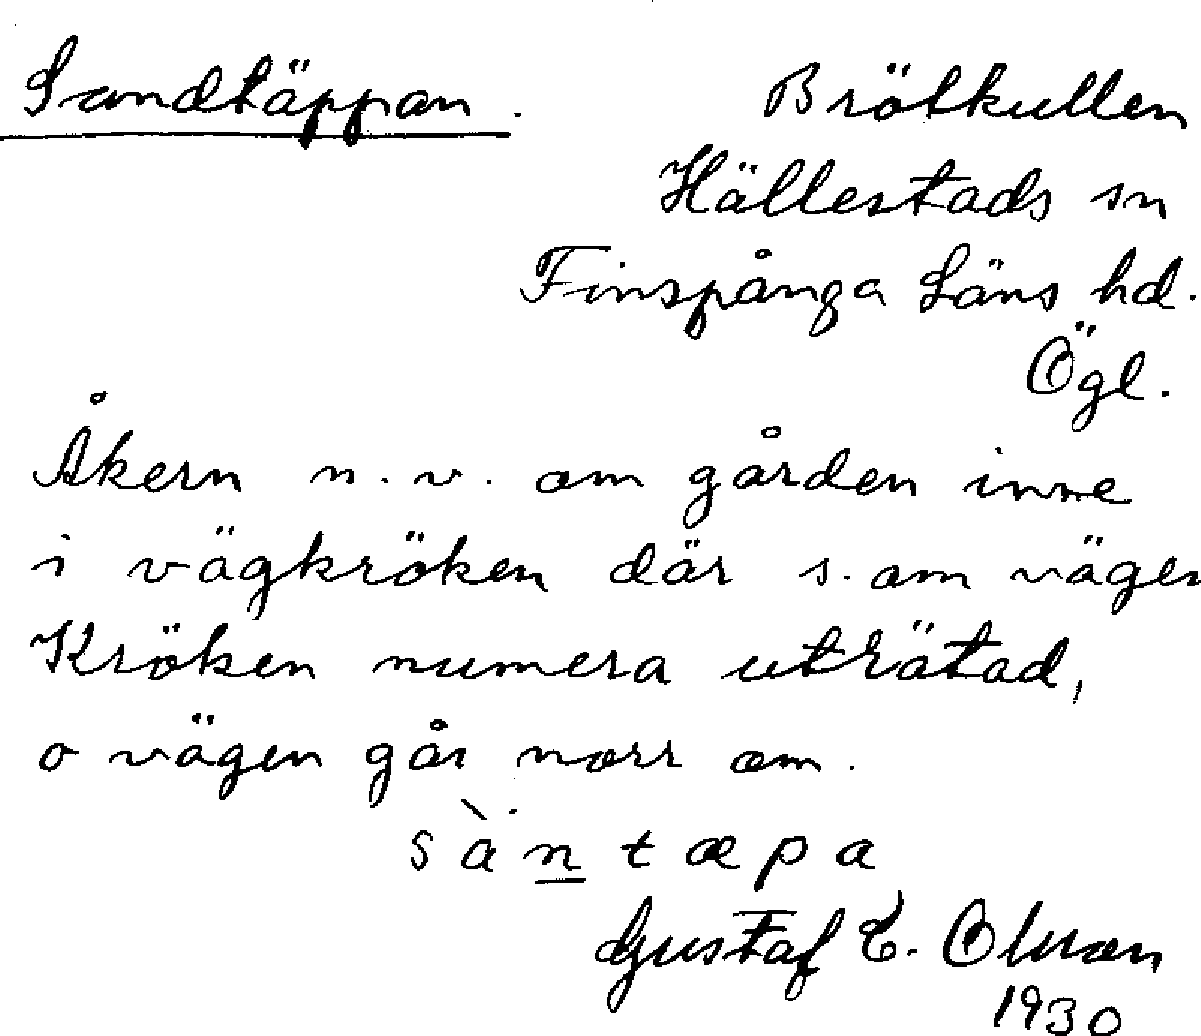 Sandtäppan. Brötkullen
Hällestads sn
Finspånga Läns hd.
Ögl.
Åkern n.v. om gården inne
i vägkröken där s. om vägen
Kröken numera uträtad,
o vägen går norr om.
sàntæpa
Gustaf E. Olsson
1930